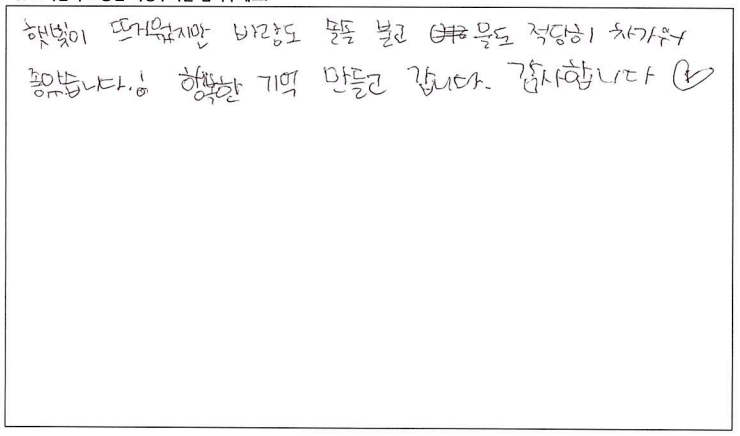 햇빛이 뜨거웠지만 바람도 솔솔 불고 물도 적당히 차가워서
좋았습니다.! 행복한 기억 만들고 갑니다. 감사합니다 ♡